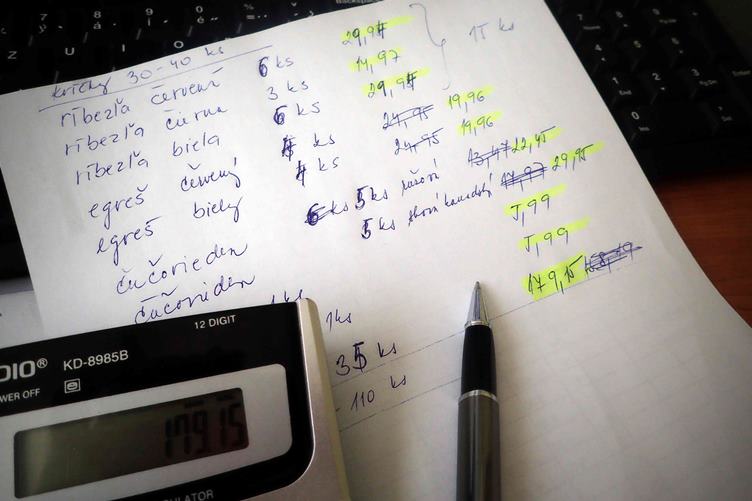 kríčky 30-40 ks
ríbezľa červená 6 ks 29,94
ríbezľa čierna 3 ks 14,97
ríbezľa biela 6 ks 29,94
15 ks
egreš červený 4 ks 24,95 19,96
egreš biely 4 ks 24,95 19,96
čučorieden 6 ks 5 ks 13,47 22,45
čučorieden 5 ks 17,97 29,95
1 ks 5,99
5,99
35 ks 179,15
110 ks
12 DIGIT
DIO® KD-8985B
WER OFF
179.15